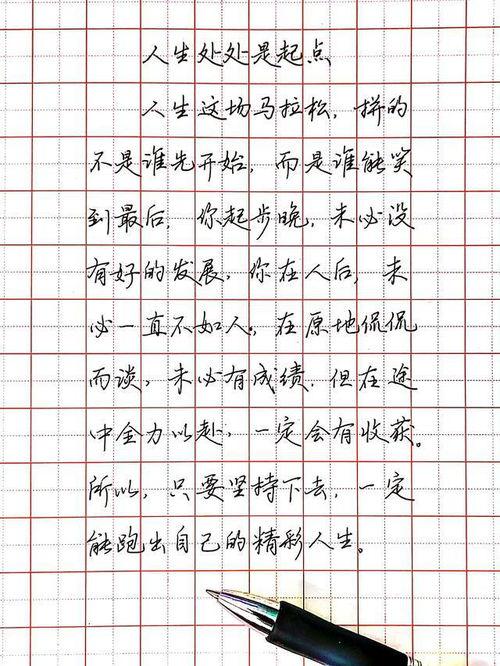 人生处处是起点
人生这场马拉松，拼的
不是谁先开始，而是谁能笑
到最后，你起步晚，未必没
有好的发展，你在人后，未
必一直不如人，在原地侃侃
而谈，未必有成绩，但在途
中全力以赴，一定会有收获。
所以，只要坚持下去，一定
能跑出自己的精彩人生。